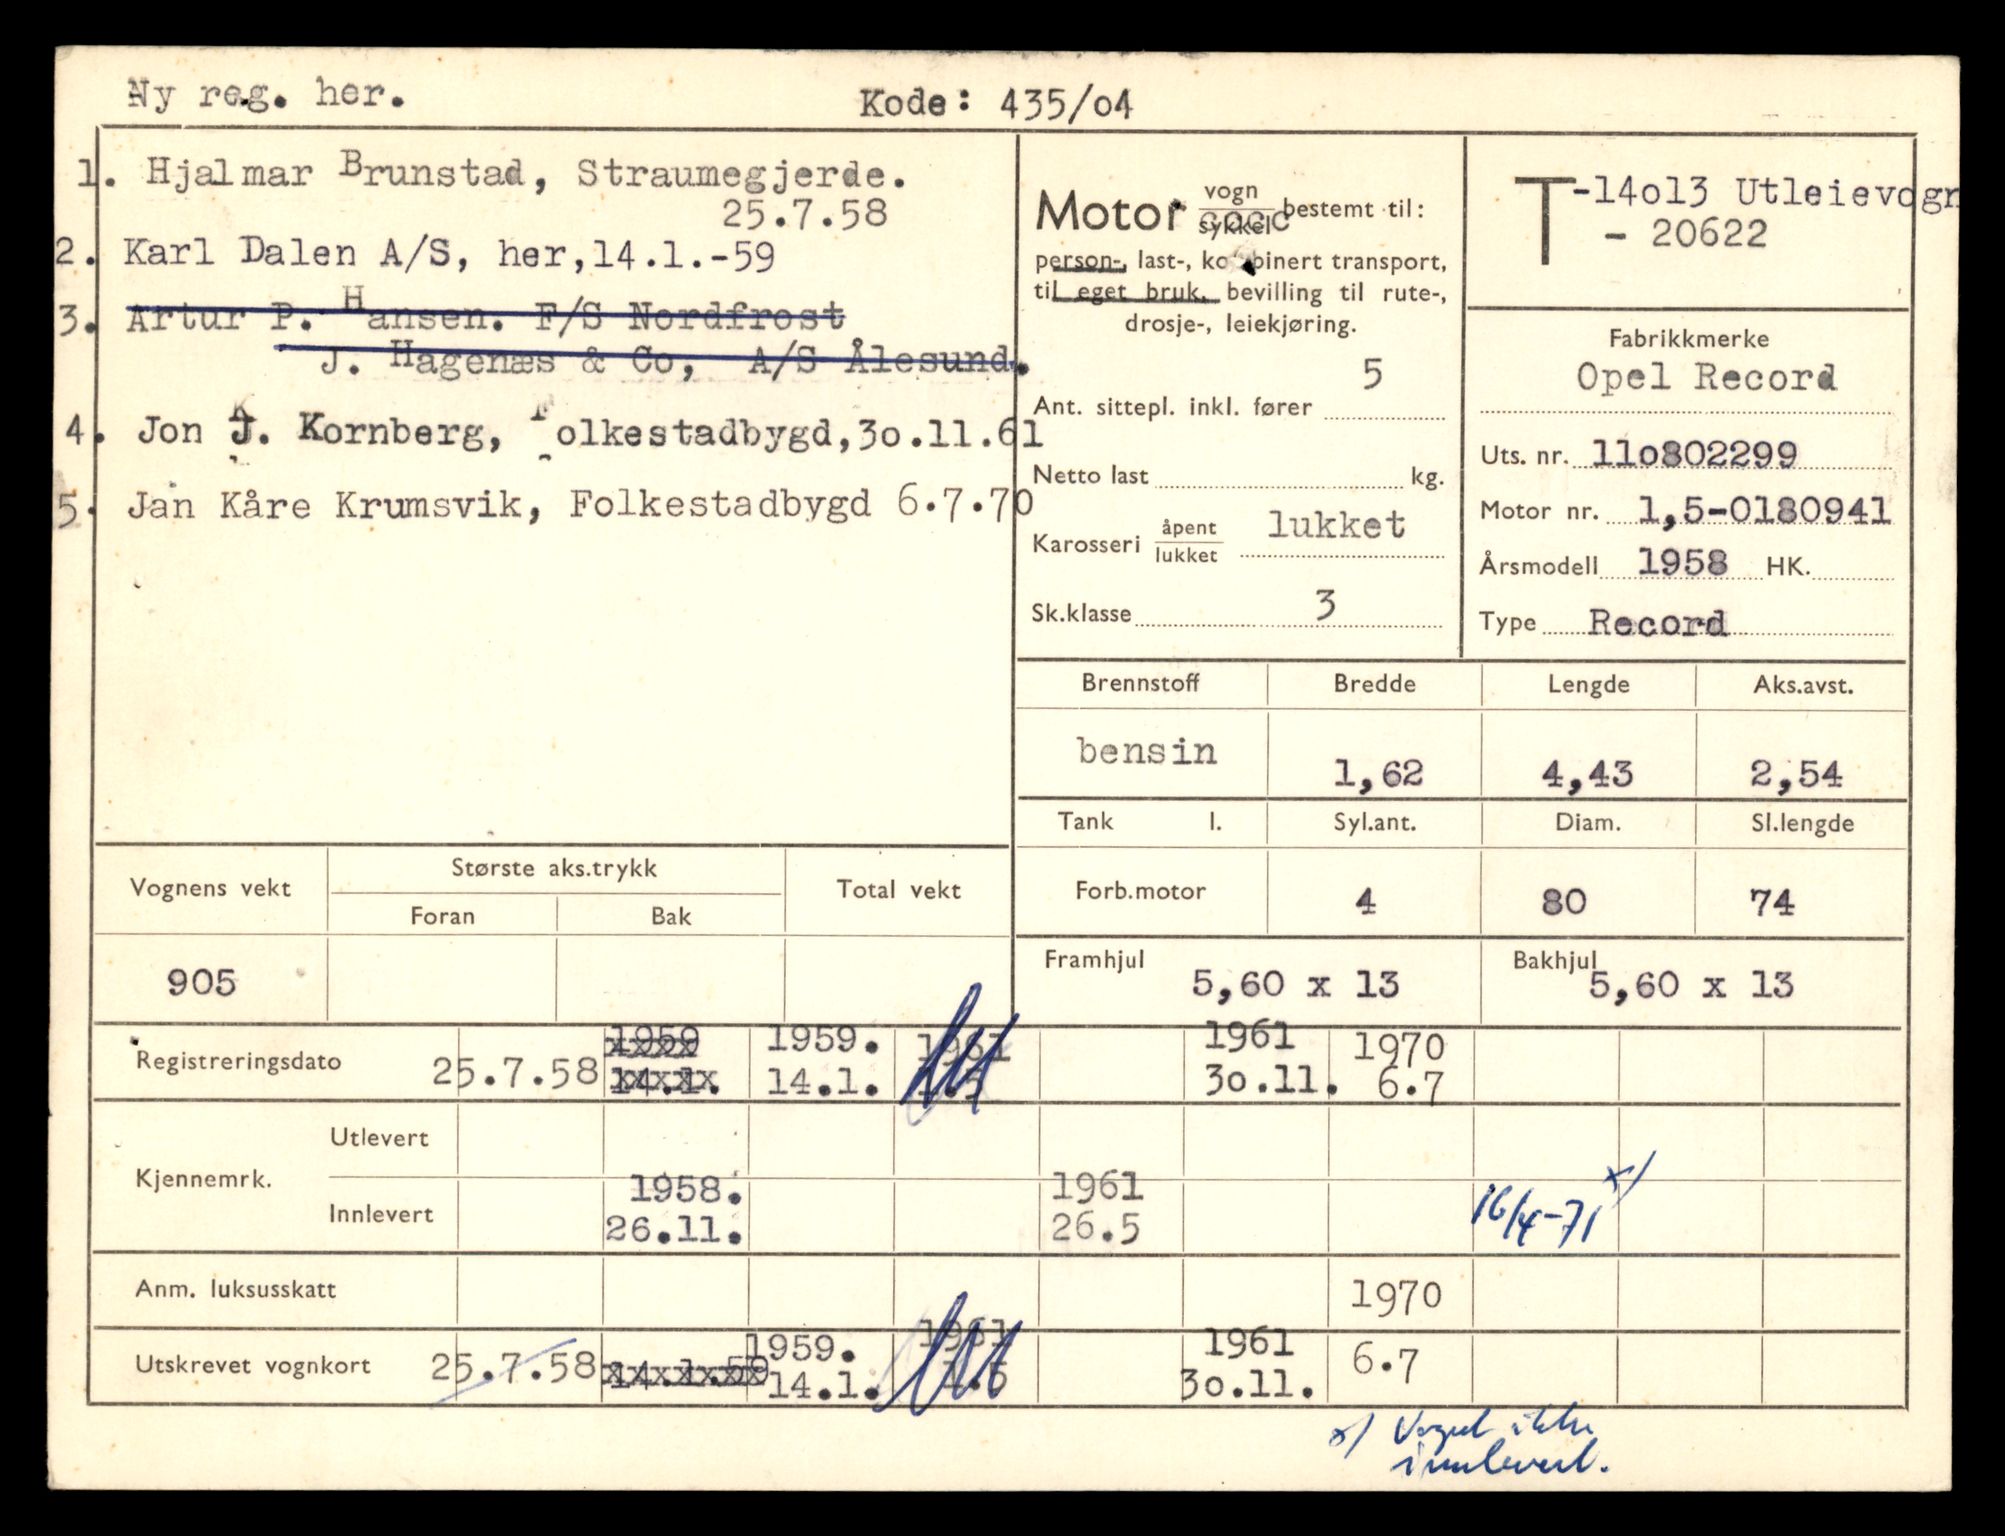 Ny reg. her.
Kode: 435/o4
1. Hjalmar Brunstad, Straumegjerde.
25.7.58
2. Karl Dalen A/S, her,14.1.-59
3. Artur P. Hansen. F/S Nordfrost
J. Hagenæs & Co, A/S Ålesund.
4. Jon K. Kornberg, Folkestadbygd,3o.11.61
5. Jan Kåre Krumsvik, Folkestadbygd 6.7.70
Motor vogn sykkel bestemt til:
person-, last-, kombinert transport,
til eget bruk, bevilling til rute-,
drosje-, leiekjøring.
5
Ant. sittepl. inkl. fører
Netto last kg.
Karosseri åpent lukket lukket
Sk.klasse 3
T-14o13 Utleievogn
- 20622
Fabrikkmerke
Opel Record
Uts. nr. 11o802299
Motor nr. 1,5-0180941
Årsmodell 1958 HK.
Type Record
Brennstoff Bredde Lengde Aks.avst.
bensin 1,62 4,43 2,54
Tank l. Syl.ant. Diam. Sl.lengde
Forb.motor 4 80 74
Framhjul 5,60 x 13 Bakhjul 5,60 x 13
Vognens vekt Største aks.trykk Total vekt
Foran Bak
905
1959 1959. 1961 1961 1970
Registreringsdato 25.7.58 14.1. 14.1. 3o.11. 6.7
Utlevert
Kjennemrk. 1958. 1961
Innlevert 26.11. 26.5 16/4-71 x)
Anm. luksusskatt 1970
1959. 1961 1961
Utskrevet vognkort 25.7.58 14.1.59 14.1. 1.5 3o.11. 6.7
x) Vognk ikke
innlevert.